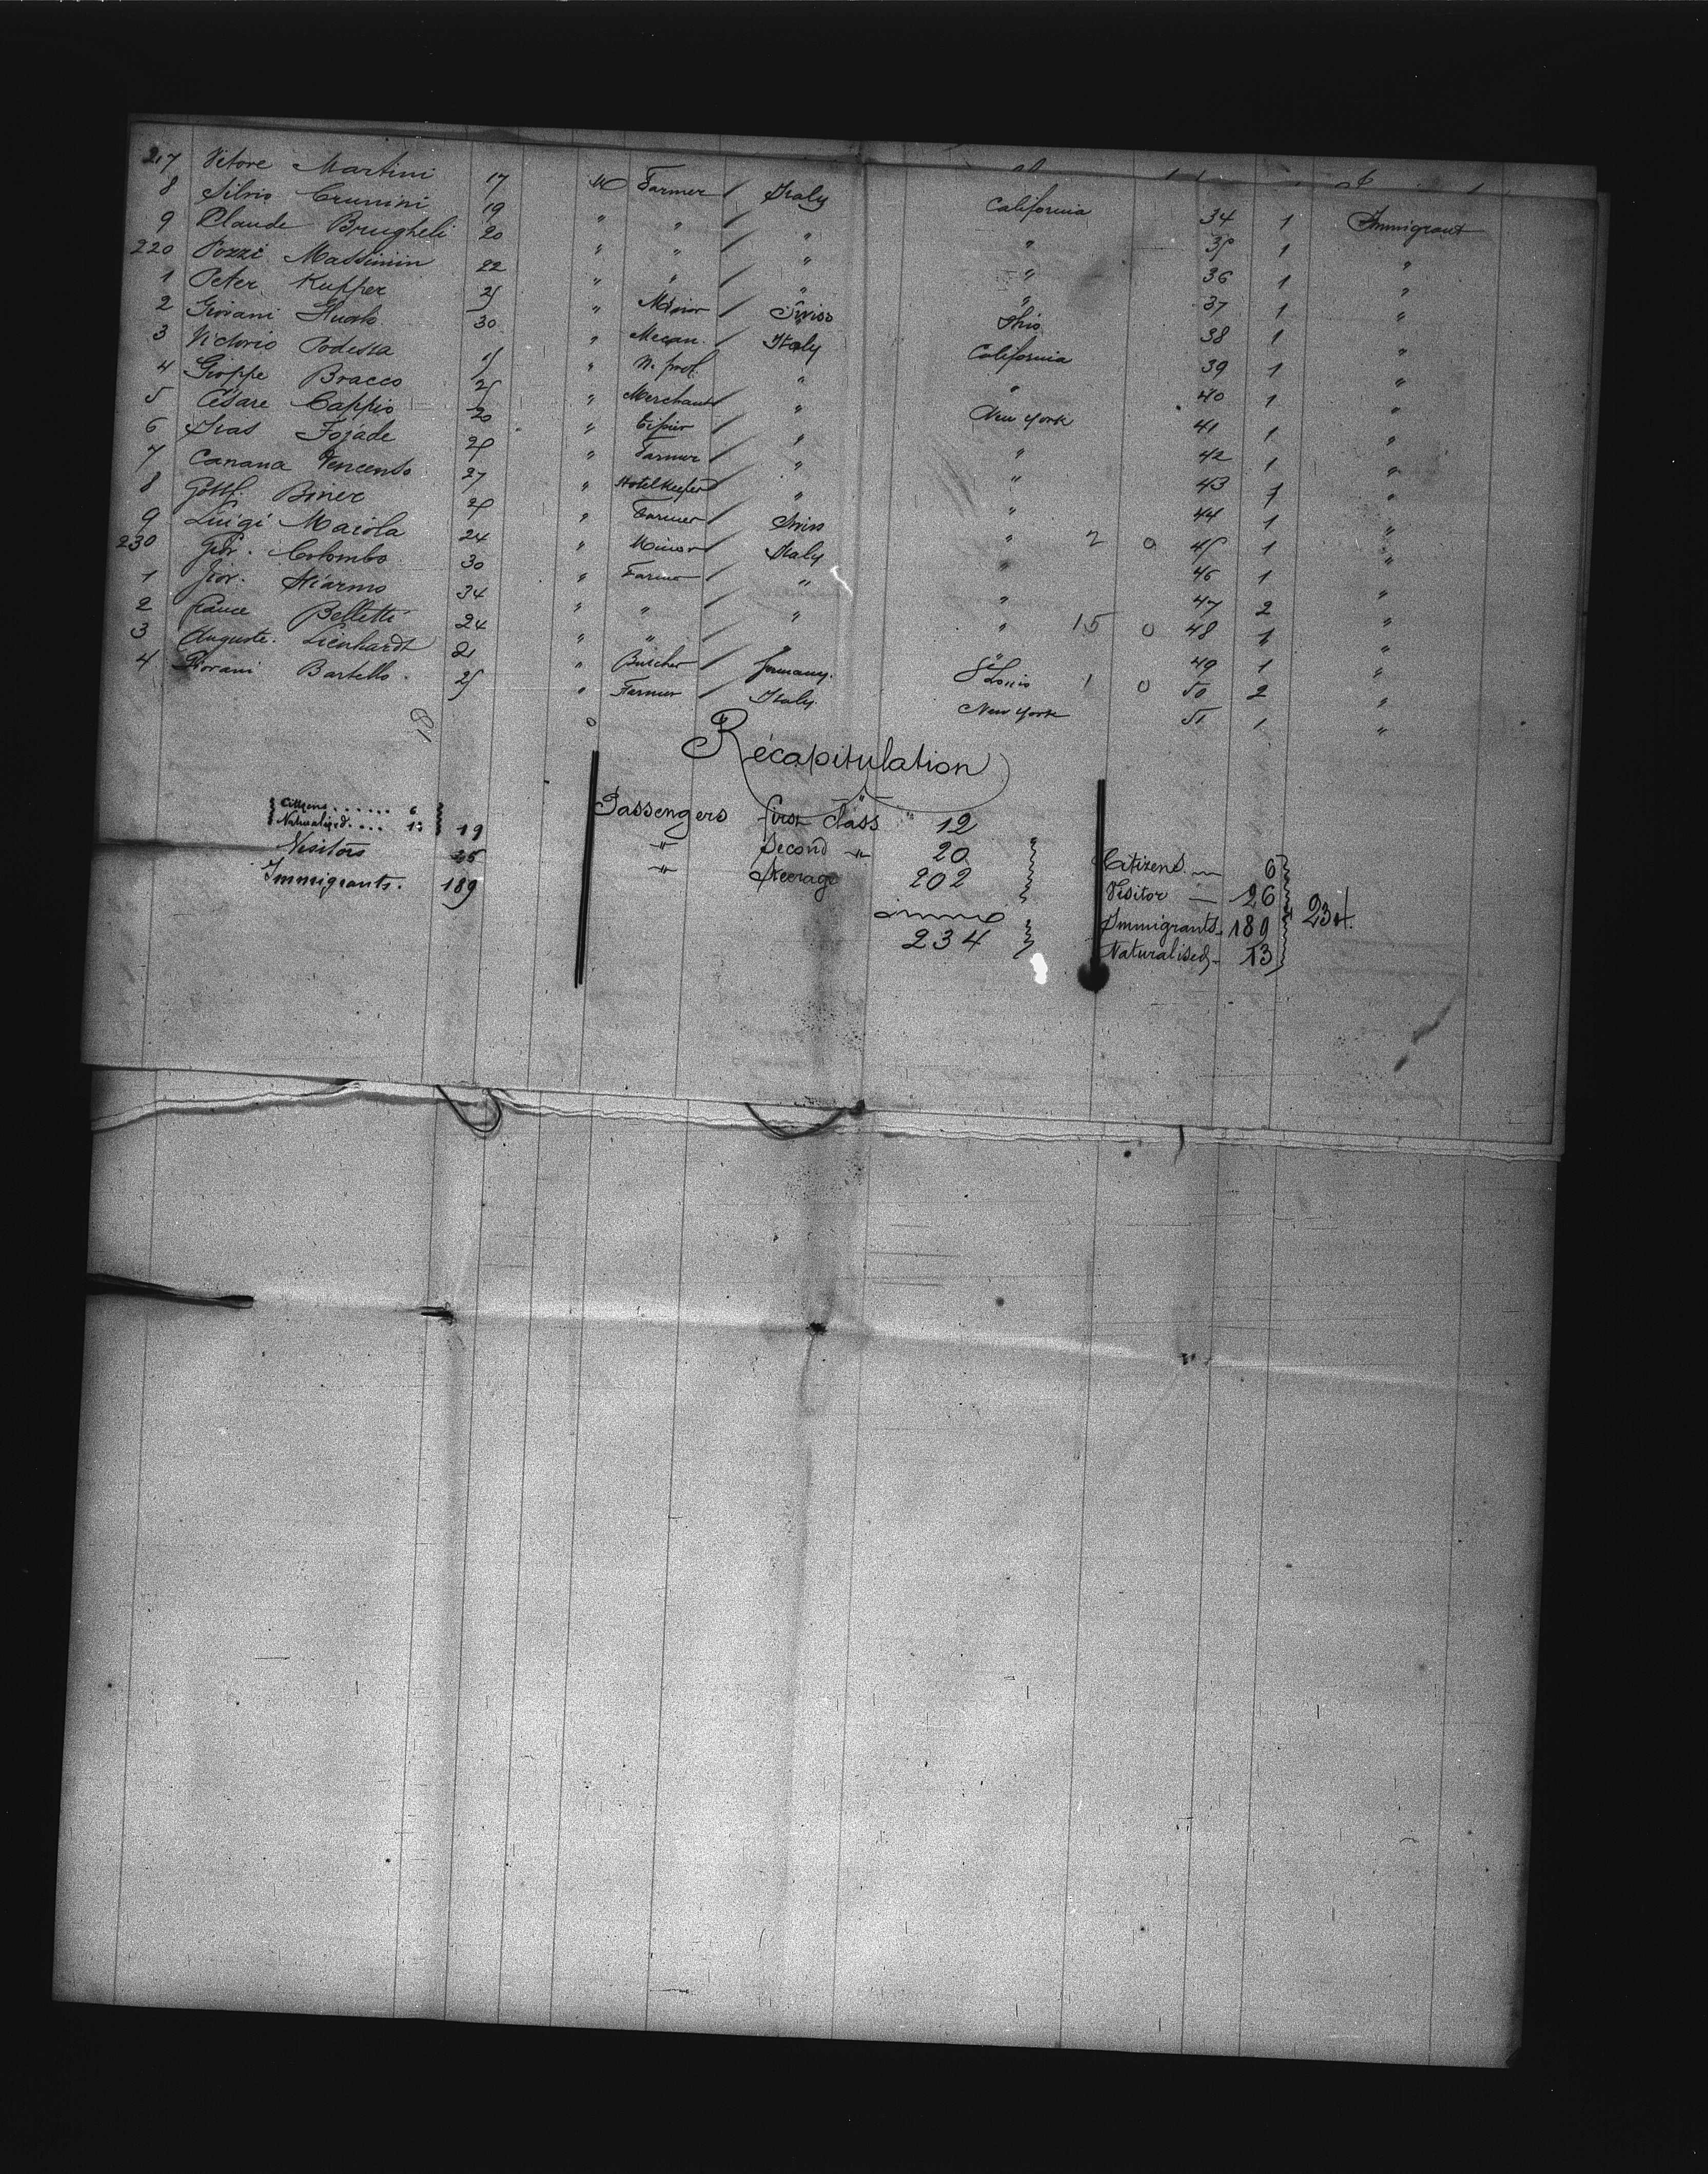 217 Vitore Martini 17 M Farmer / Italy California 34 1 Immigrant
8 Silvio Crumini 19 " " / " " 35 1 "
9 Claude Brugheli 20 " " / " " 36 1 "
220 Pozzi Massimin 22 " " / " " 37 1 "
1 Peter Kupper 25 " Minor / Swiss Ohio 38 1 "
2 Giovani 30 " Mecan. / Italy California 39 1 "
3 Victorio Podesta " N. prof. / " " 40 1 "
4 Gioppe Bracco 25 " Merchant / " New York 41 1 "
5 Césare Cappio 20 " / " " 42 1 "
6 Fojade " Farmer / " " 43 1 "
7 Canana Vencento 27 " Hotelkeeper / " " 44 1 "
8 Gottf. Biner " Farmer / Swiss " 2 0 45 1 "
9 Luigi Maiola 24 " Minor / Italy " 46 1 "
230 Gior. Colombo 30 " Farmer / " " 47 2 "
1 Gior. 34 " " / " " 15 0 48 1 "
2 France Belletti 24 " " / " " 49 1 "
3 Auguste. Lienhardt 21 " Butcher / Germany. St Louis 1 0 50 2 "
4 Giovani Bartello. 25 " Farmer / Italy New York 51 1 "
18 0
Récapitulation
Citizens...... 6
Naturalized.... 13 19
Visitors 26
Immigrants. 189
Passengers first Class " 12
" Second " 20
" Steerage 202
234
Citizens. 6
Visitor 26
Immigrants 189
Naturalised 13
234.